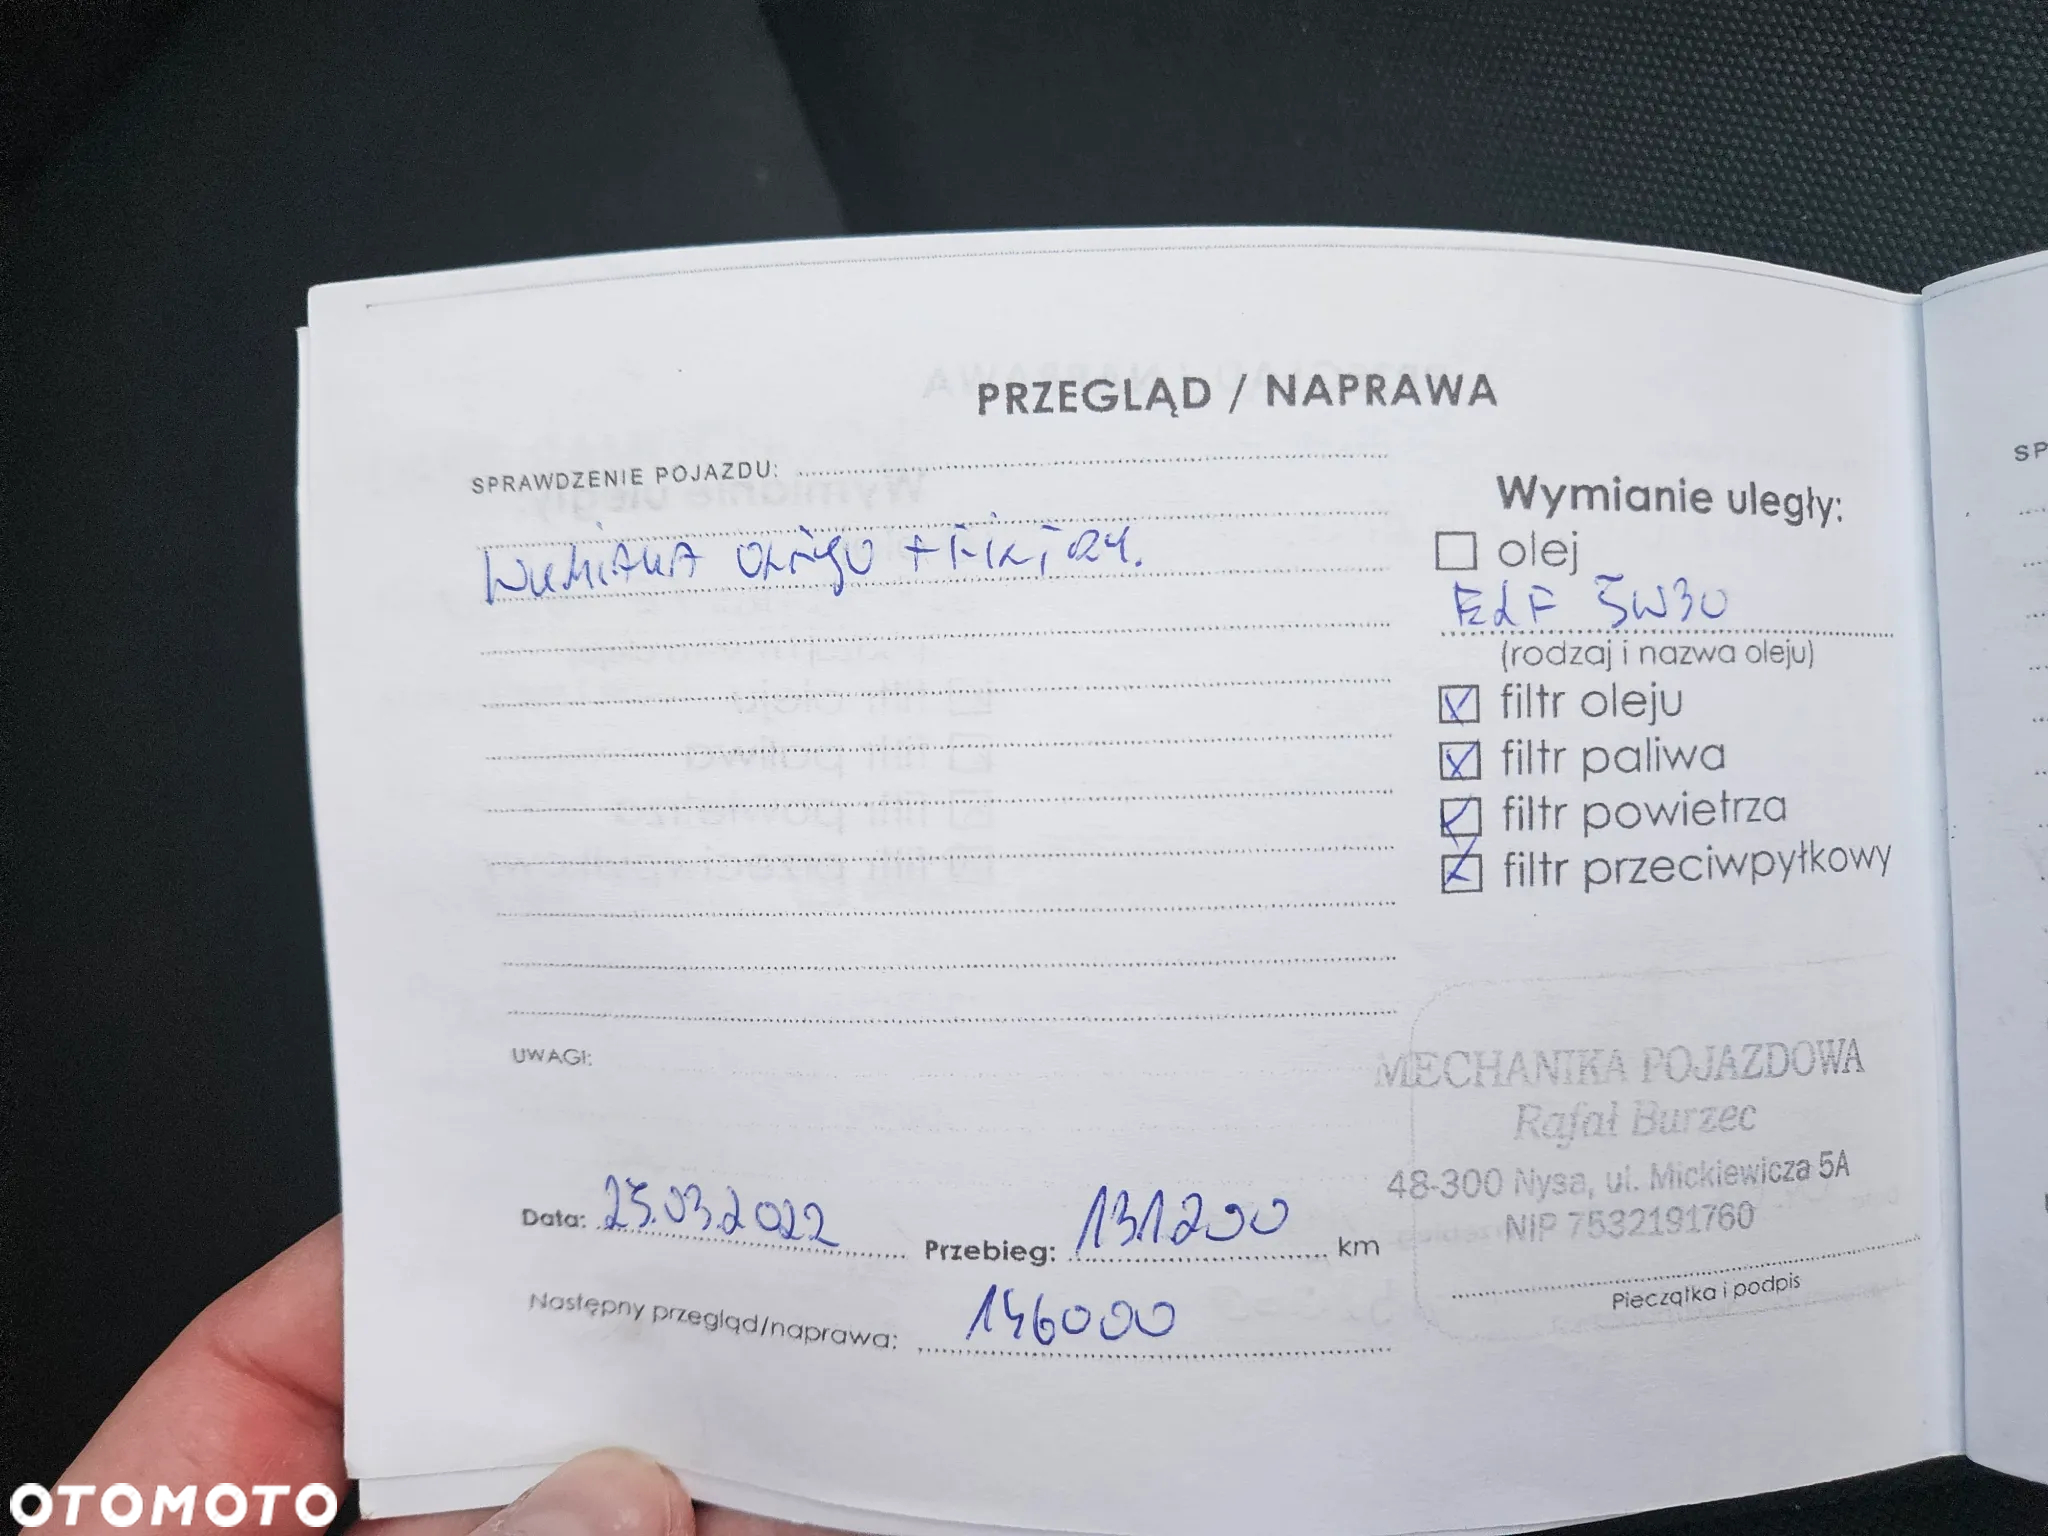 PRZEGLĄD / NAPRAWA
SPRAWDZENIE POJAZDU:
WYMIANA OLEJU + FILTRY.
Wymianie uległy:
olej
ELF 5W30
(rodzaj i nazwa oleju)
filtr oleju
filtr paliwa
filtr powietrza
filtr przeciwpyłkowy
UWAGI:
MECHANIKA POJAZDOWA
Rafał Burzec
48-300 Nysa, ul. Mickiewicza 5A
NIP 7532191760
Data: 25.03.2022 Przebieg: 131200 km
Pieczątka i podpis
Następny przegląd/naprawa: 146000
SP
OTOMOTO